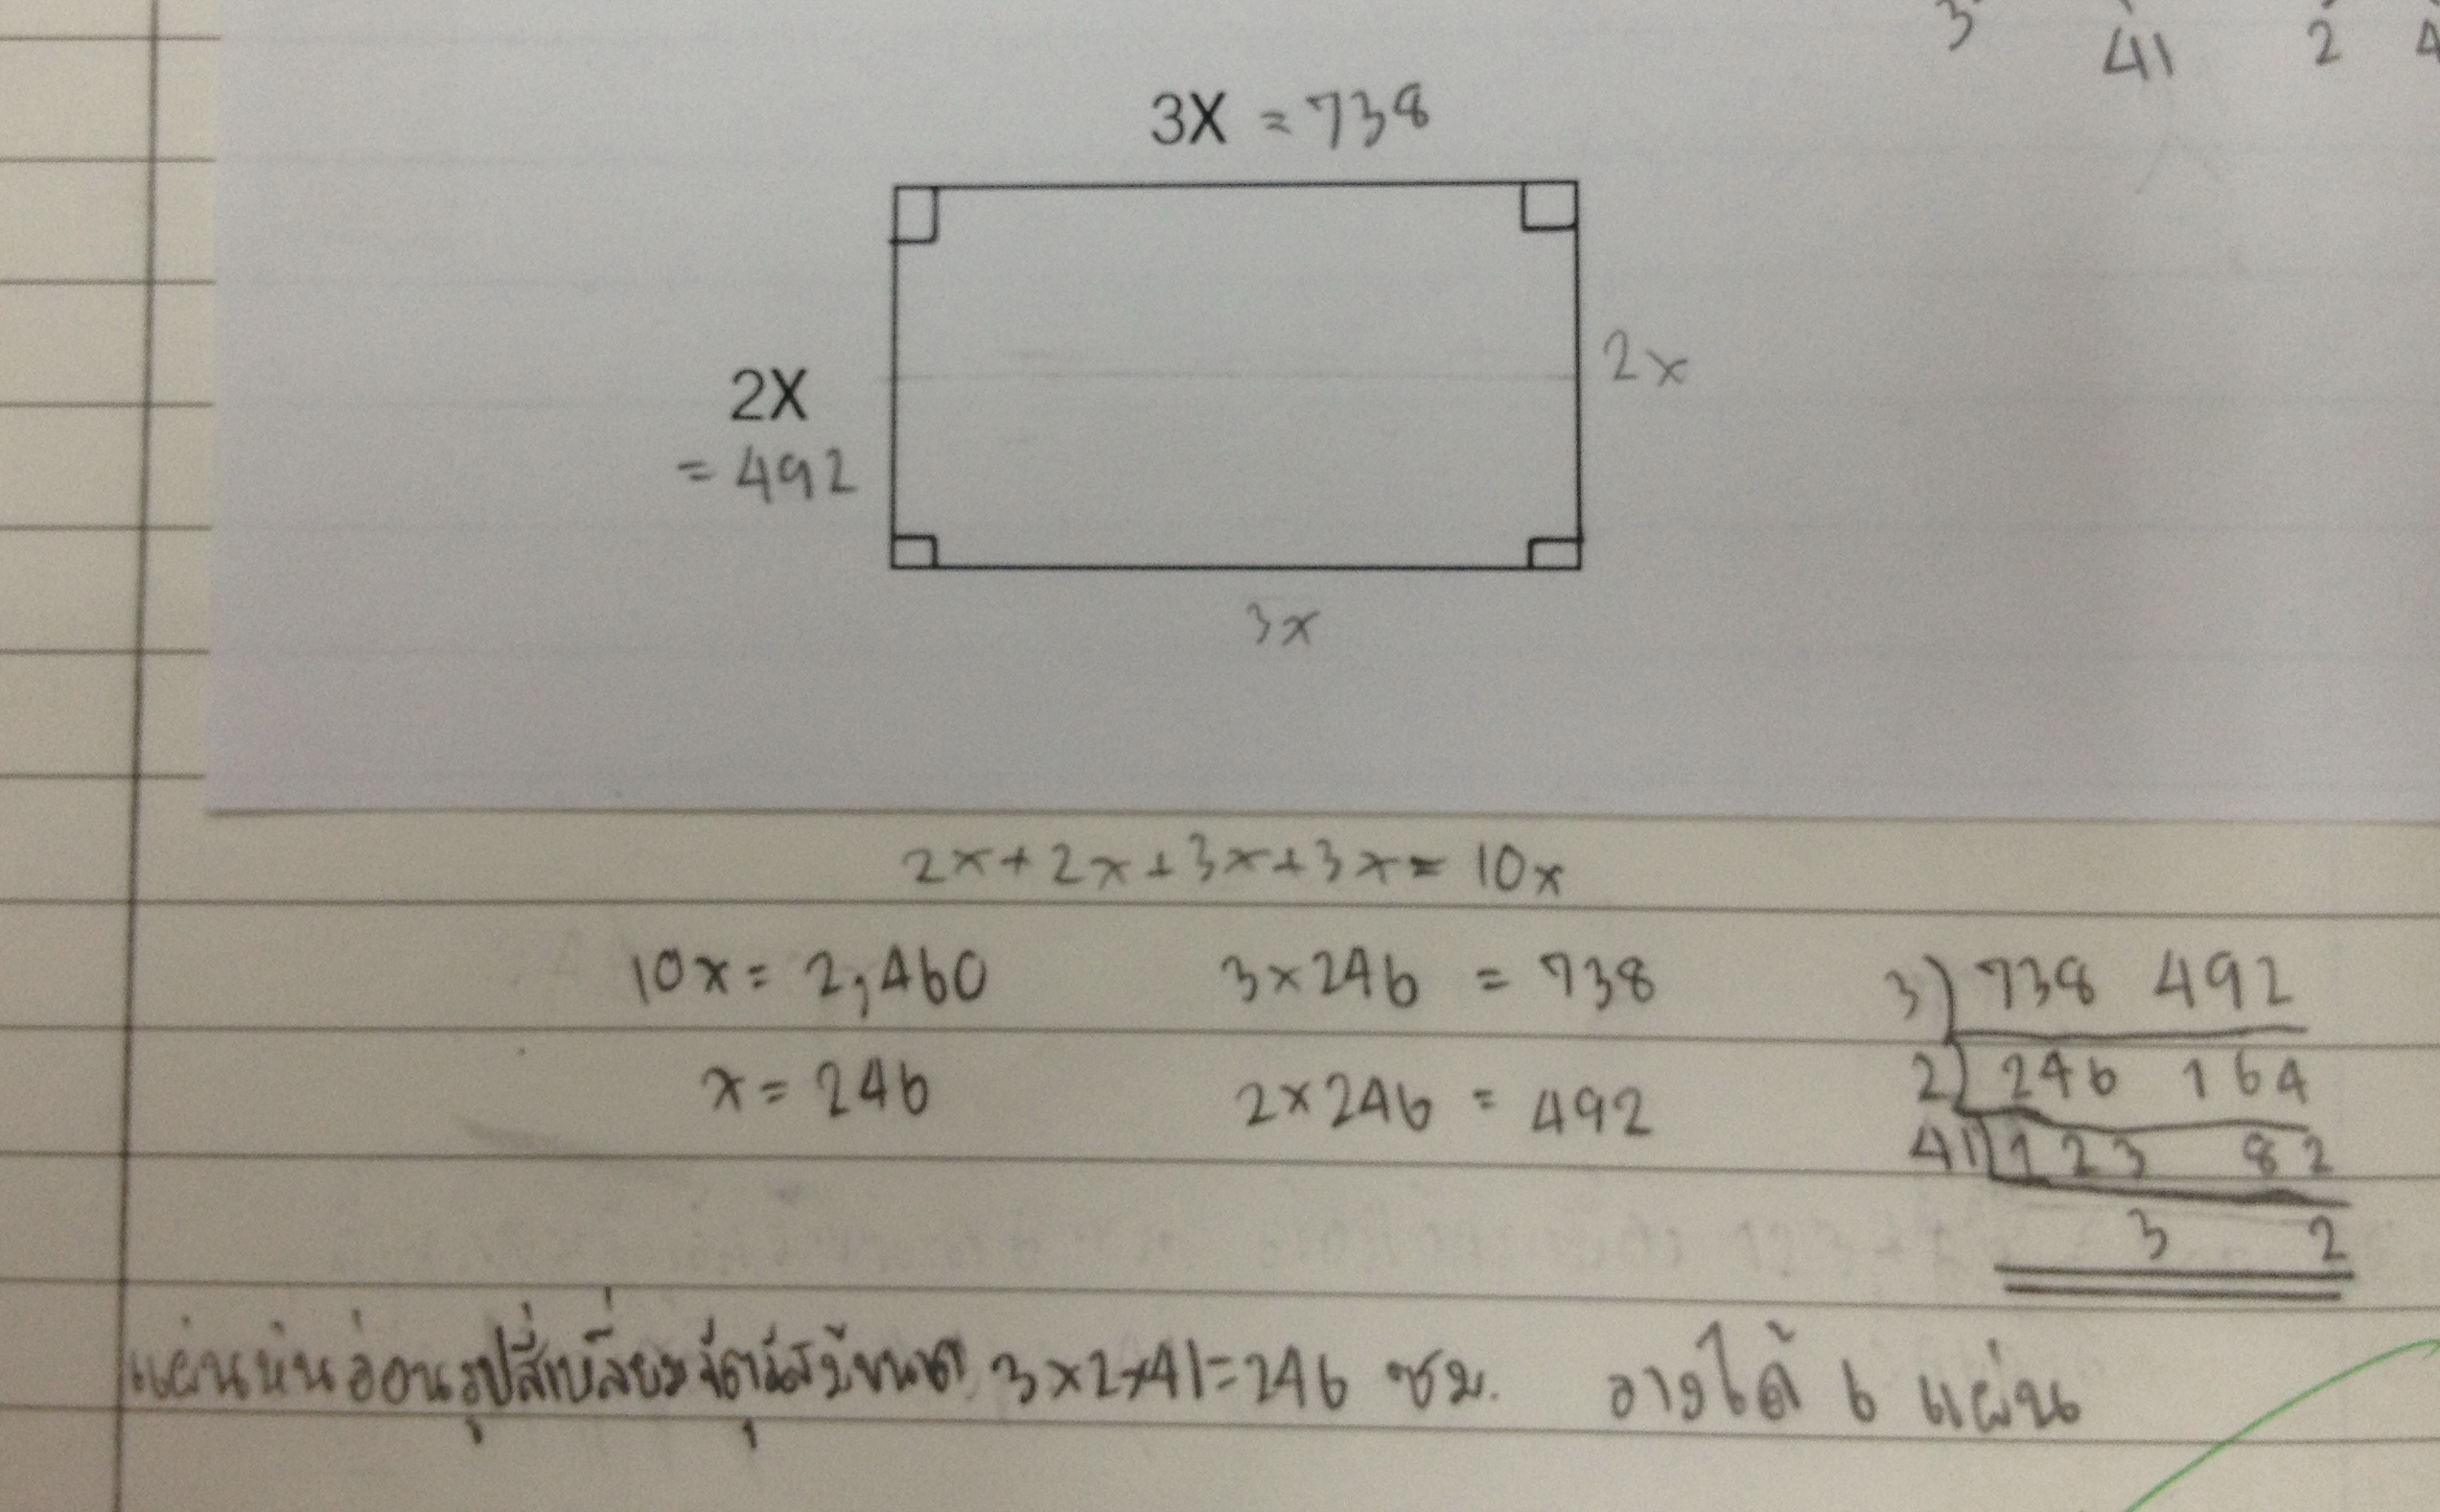 3 41 2 4
3X = 738
2X
= 492
2x
3x
2x + 2x + 3x + 3x = 10x
10x = 2,460
3 x 246 = 738
3) 738 492
x = 246
2 x 246 = 492
2) 246 164
41) 123 82
3 2
แผ่นหินอ่อนรูปสี่เหลี่ยมจัตุรัสมีขนาด 3x2x41=246 ซม. วางได้ 6 แผ่น